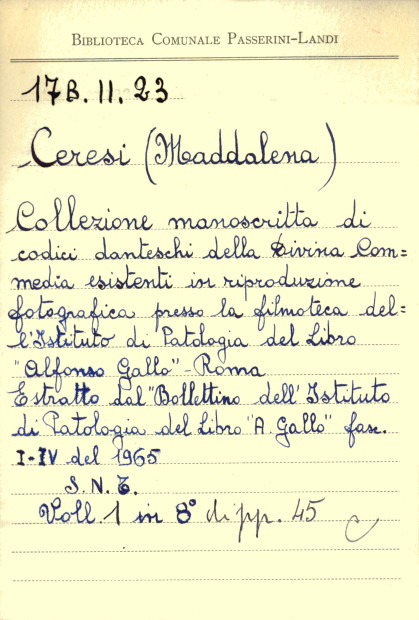 BIBLIOTECA COMUNALE PASSERINI-LANDI
17B.II.23
Ceresi (Maddalena)
Collezione manoscritta di
codici danteschi della Divina Com=
media esistenti in riproduzione
fotografica presso la filmoteca del=
l'Istituto di Patologia del Libro
"Alfonso Gallo" - Roma
Estratto dal "Bollettino dell'Istituto
di Patologia del Libro "A. Gallo" fasc.
I-IV del 1965
S.N.T.
Voll. 1 in 8° di pp. 45
C